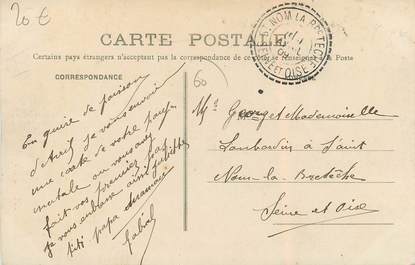 20 €
CARTE POSTALE
Certains pays étrangers n'acceptent pas la correspondance de ce côté se renseigner à la Poste
CORRESPONDANCE
60
ST NOM LA BRETECHE
SEINE ET OISE
En guise de poisson
d'Avril je vous envoie
une carte de votre pays
natale ou vous avez
fait vos premiers pas
je vous embrasse ainsi
titi papa mamam
Georges et Mademoiselle
Lombardin à Saint
Nom-la-Bretèche
Seine et Oise